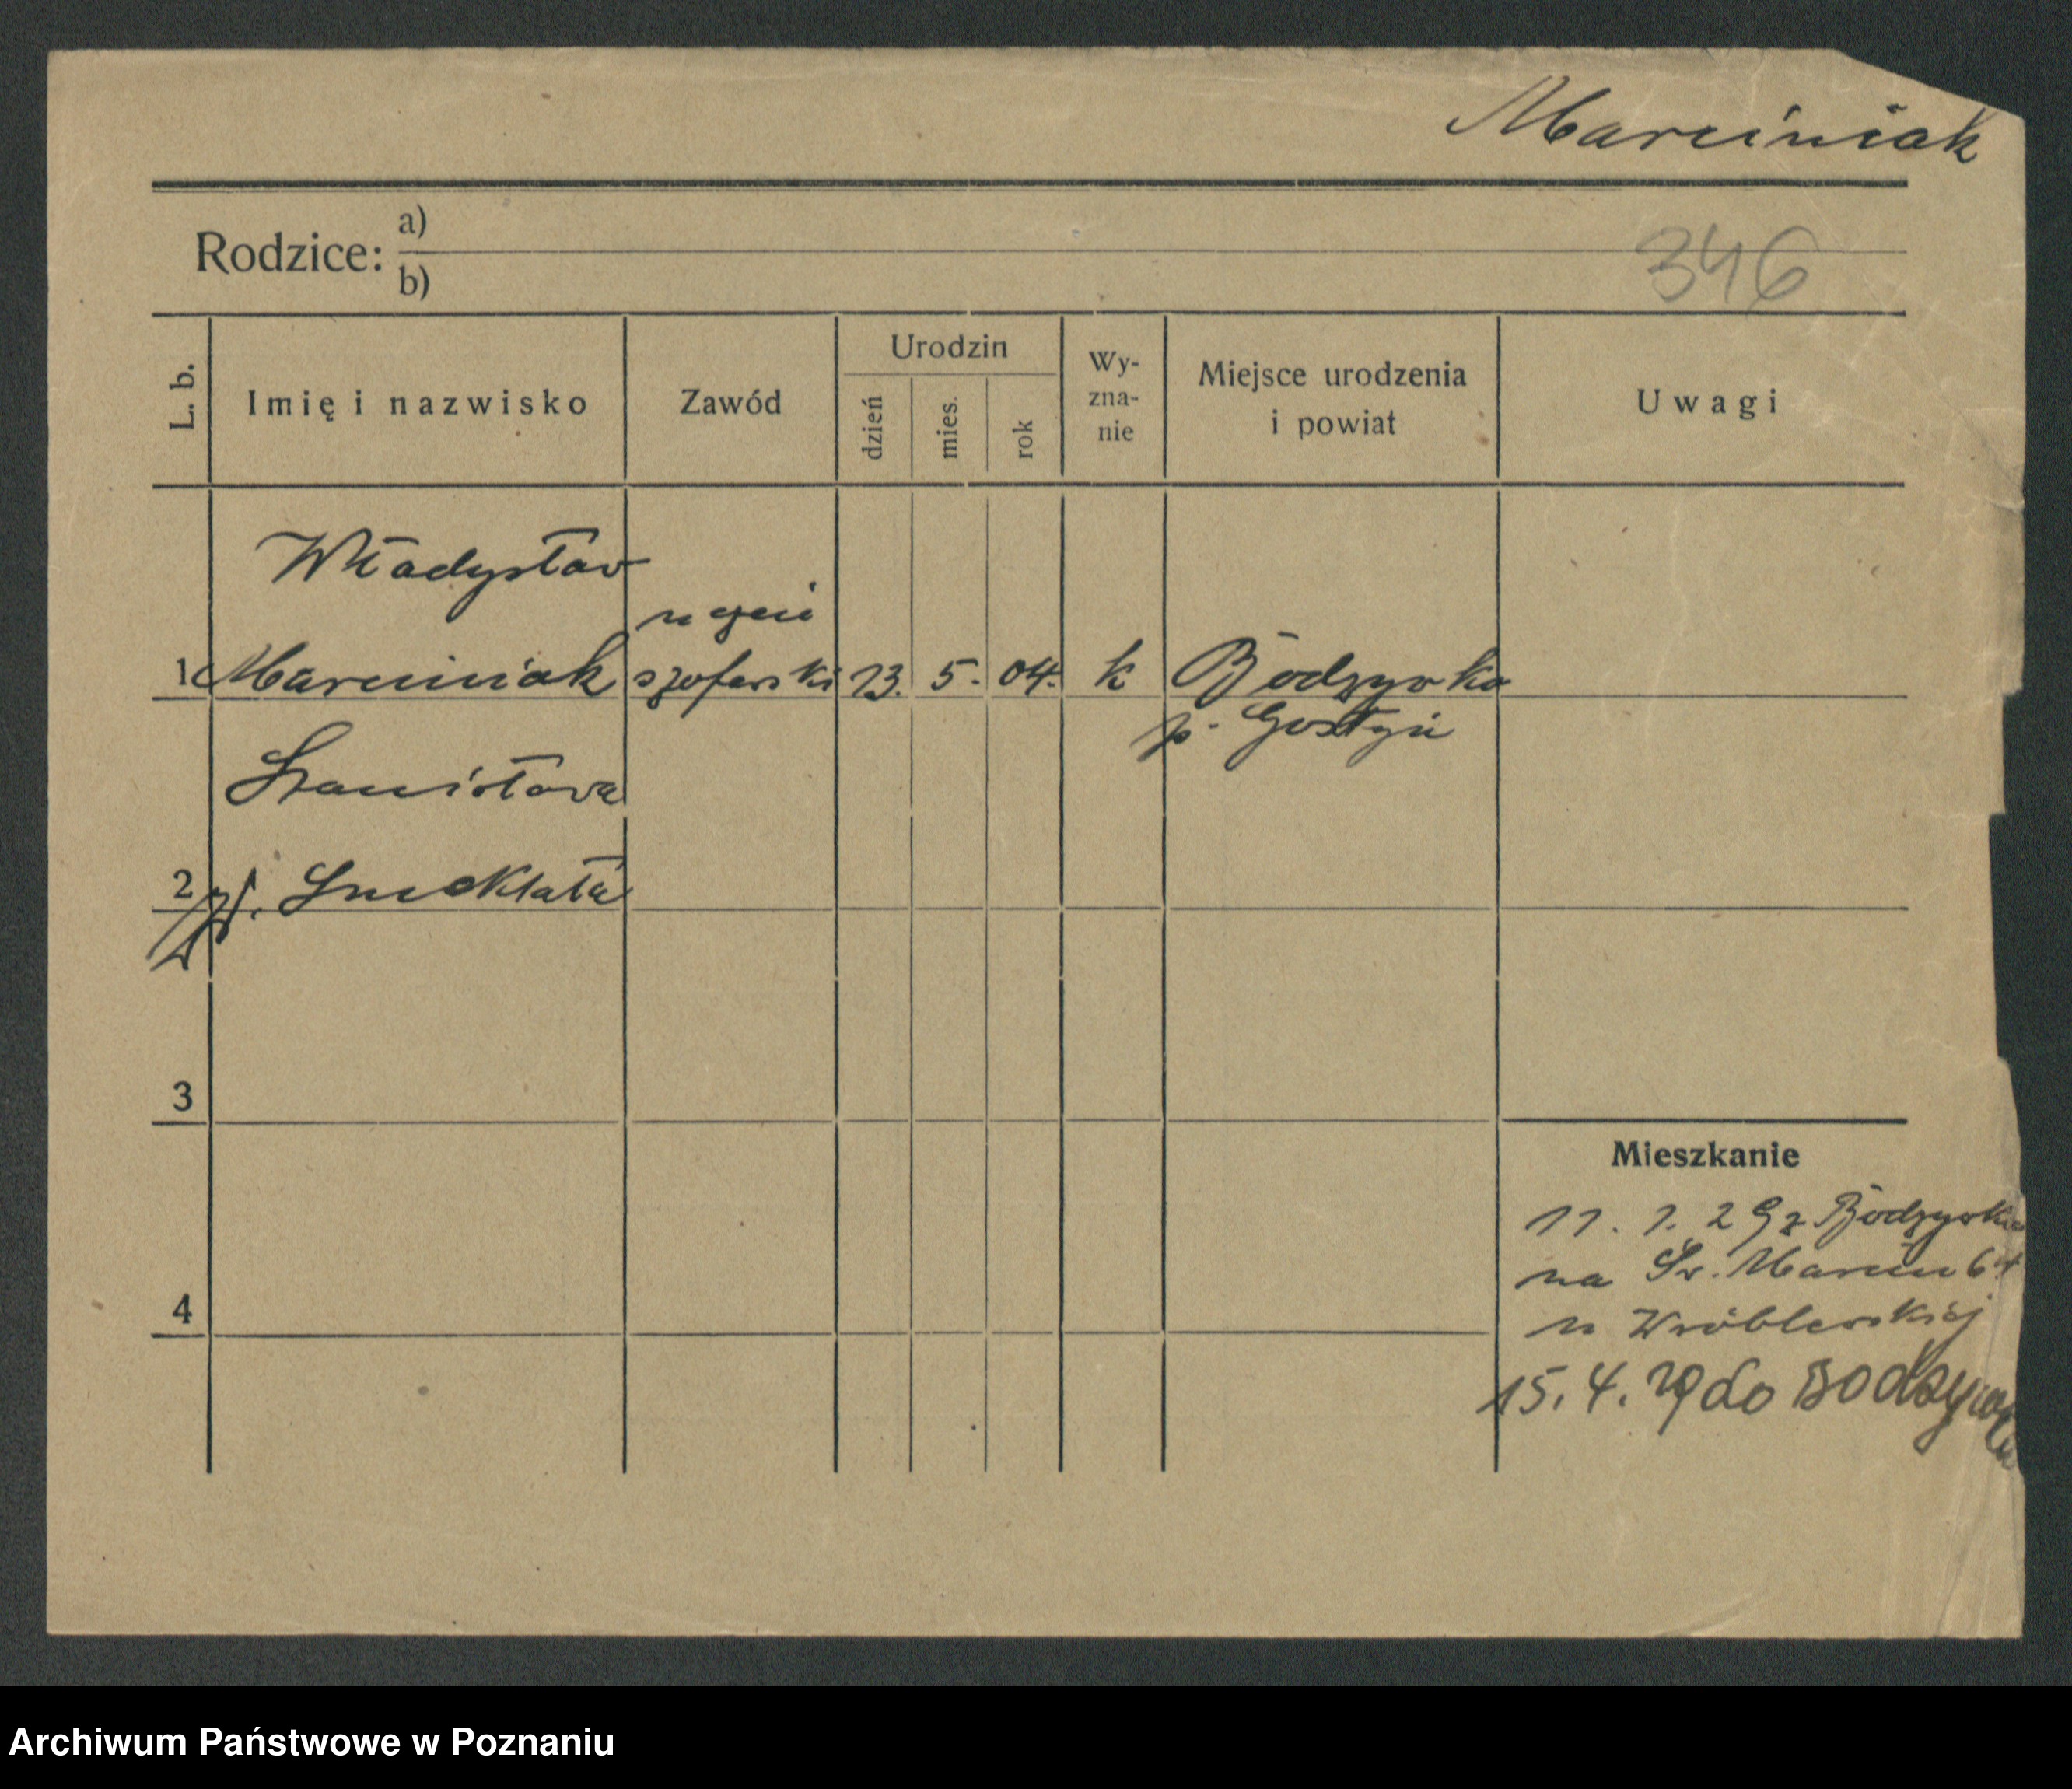 Marciniak
Rodzice: a)
b)
346
L. b.
Imię i nazwisko
Zawód
Urodzin
dzień
mies.
rok
Wy-
zna-
nie
Miejsce urodzenia
i powiat
Uwagi
Władysław
uczeń
1 Marciniak szoferski 13. 5. 04. k Bodzewko
p. Gostyń
Stanisława
2
3
4
Mieszkanie
11. 1. 29 z Bodzewka
na Św. Marcin 64
u Wróblewskiej
15. 4. 29 do
Archiwum Państwowe w Poznaniu